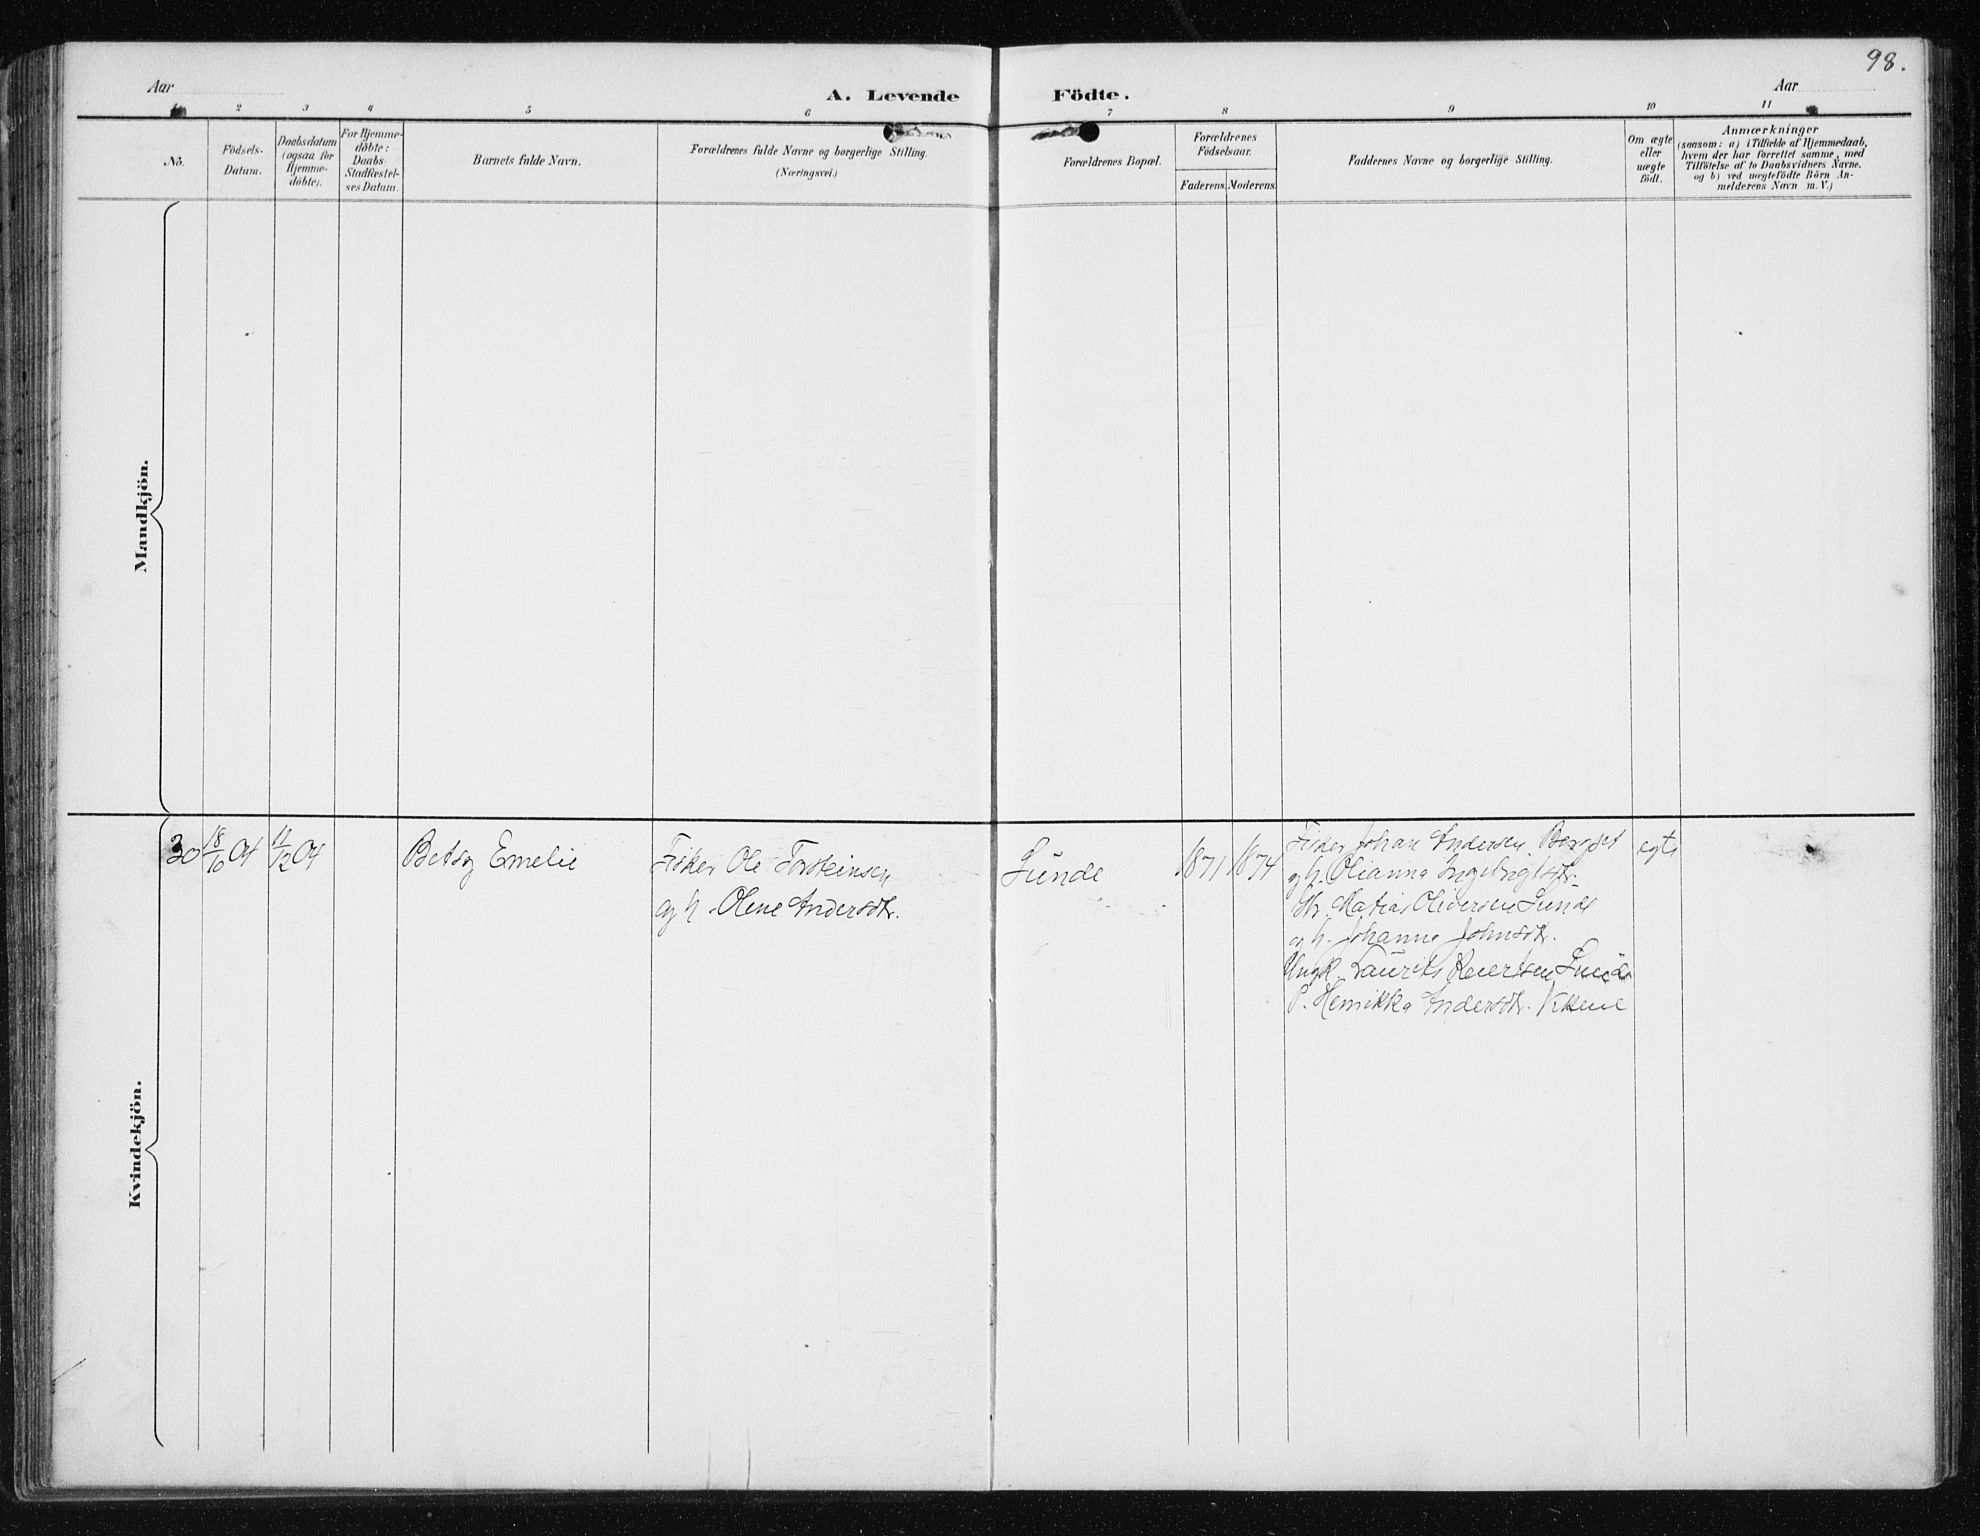 98.
Aar
A. Levende Födte.
Aar
1 2 3 4 5 6 7 8 9 10 11
No.
Födsels-
Datum.
Daabsdatum
(ogsaa for
Hjemme-
döbte).
For Hjemme-
döbte:
Daabs-
Stadfæstel-
ses Datum.
Barnets fulde Navn.
Forældrenes fulde Navne og borgerlige Stilling.
(Næringsvei.)
Forældrenes Bopæl.
Forældrenes
Födselsaar.
Faderens. Moderens.
Faddernes Navne og borgerlige Stilling.
Om ægte
eller
uægte
födt.
Anmærkninger
(saasom: a) i Tilfælde af Hjemmedaab,
hvem der har forrettet samme, med
Tilföielse af to Daabsvidners Navne.
og b) ved uægtefödte Börn An-
melderens Navn m. V.)
Mandkjön.
Kvindekjön.
30 18/10 04 11/12 04
Betsy Emelie
Fisker Ole Torsteinsen
og h. Olene Andersdtr.
Sunde
1871 1874
Fisker Johan Andersen Berget
og h. Olianna Ingebrigtsdtr.
Matias Oliversen Sunde
og h. Johanna Johnsdtr.
Ungk. Laurits Reiertsen Sunde
P. Henrikka Andersdtr. Vikene
egte